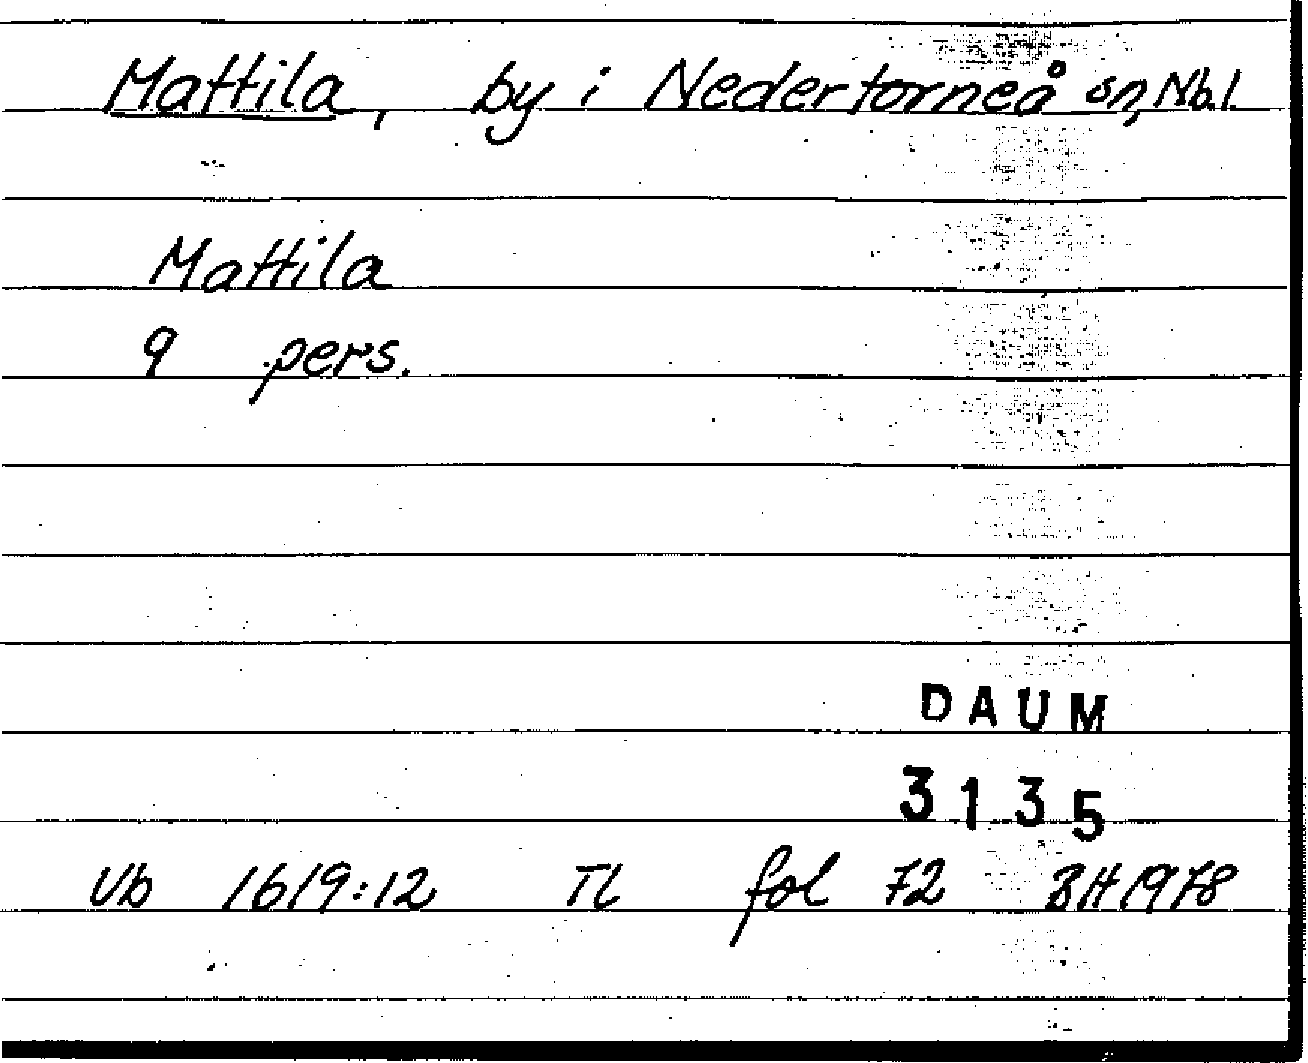 Mattila, by i Nedertorneå sn, Nb.l.
Mattila
9 pers.
DAUM
3135
Vb 1619:12 TL fol 72 BH 1978